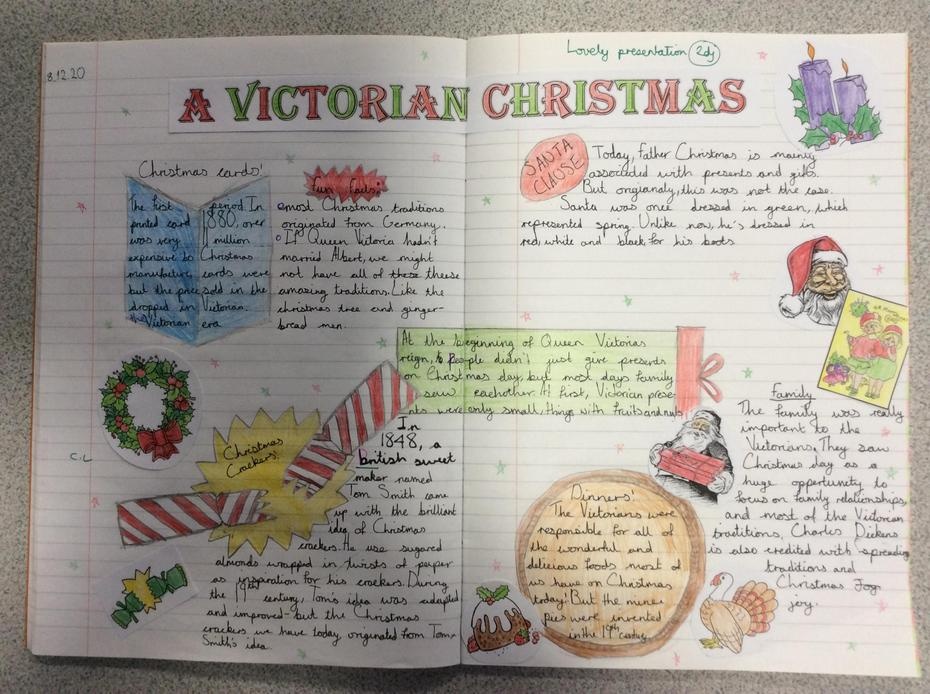 8.12.20
Lovely presentation 2dj
A VICTORIAN CHRISTMAS
Christmas cards!
The first
printed card
was very
expensive to
manufacture
but the price
dropped in the
Victorian era
period. In
1880, over
1 million
Christmas
cards were
sold in the
Victorian.
fun facts:
most Christmas traditions
originated from Germany.
If Queen Victoria hadn't
married Albert, we might
not have all of these theese
amazing traditions. Like the
christmas tree and ginger-
bread men.
SANTA
CLAUSE
Today, father Christmas is mainly
associated with presents and gifts.
But origianaly, this was not the case.
Santa was once dressed in green, which
represented spring. Unlike now, he's dressed in
red, white and black for his boots
At the beginning of Queen Victorias
reign, people didn't just give presents
on Christmas day, but most days family
saw eachother. At first, Victorian prese-
nts were only small things with fruits and nuts.
C.L
Christmas
Crackers!
In
1848, a
british sweet
maker named
Tom Smith came
up with the brilliant
idea of Christmas
crackers. He use sugared
almonds wrapped in twists of paper
as inspiration for his crackers. During
the 19th century, Tom's idea was adapted
and improved- but the Christmas
crackers we have today originated from Tom
Smith's idea.
Dinners!
The Victorians were
responsible for all of
the wonderful and
delicious foods most of
us have on Christmas
today! But the mince
pies were invented
in the 19th century
Family
The family was really
important to the
Victorians. They saw
Christmas day as a
huge opportunity to
focus on family relationships,
and most of the Victorian
traditions, Charles Dickens
is also credited with spreading
traditions and
Christmas Joy.
joy.